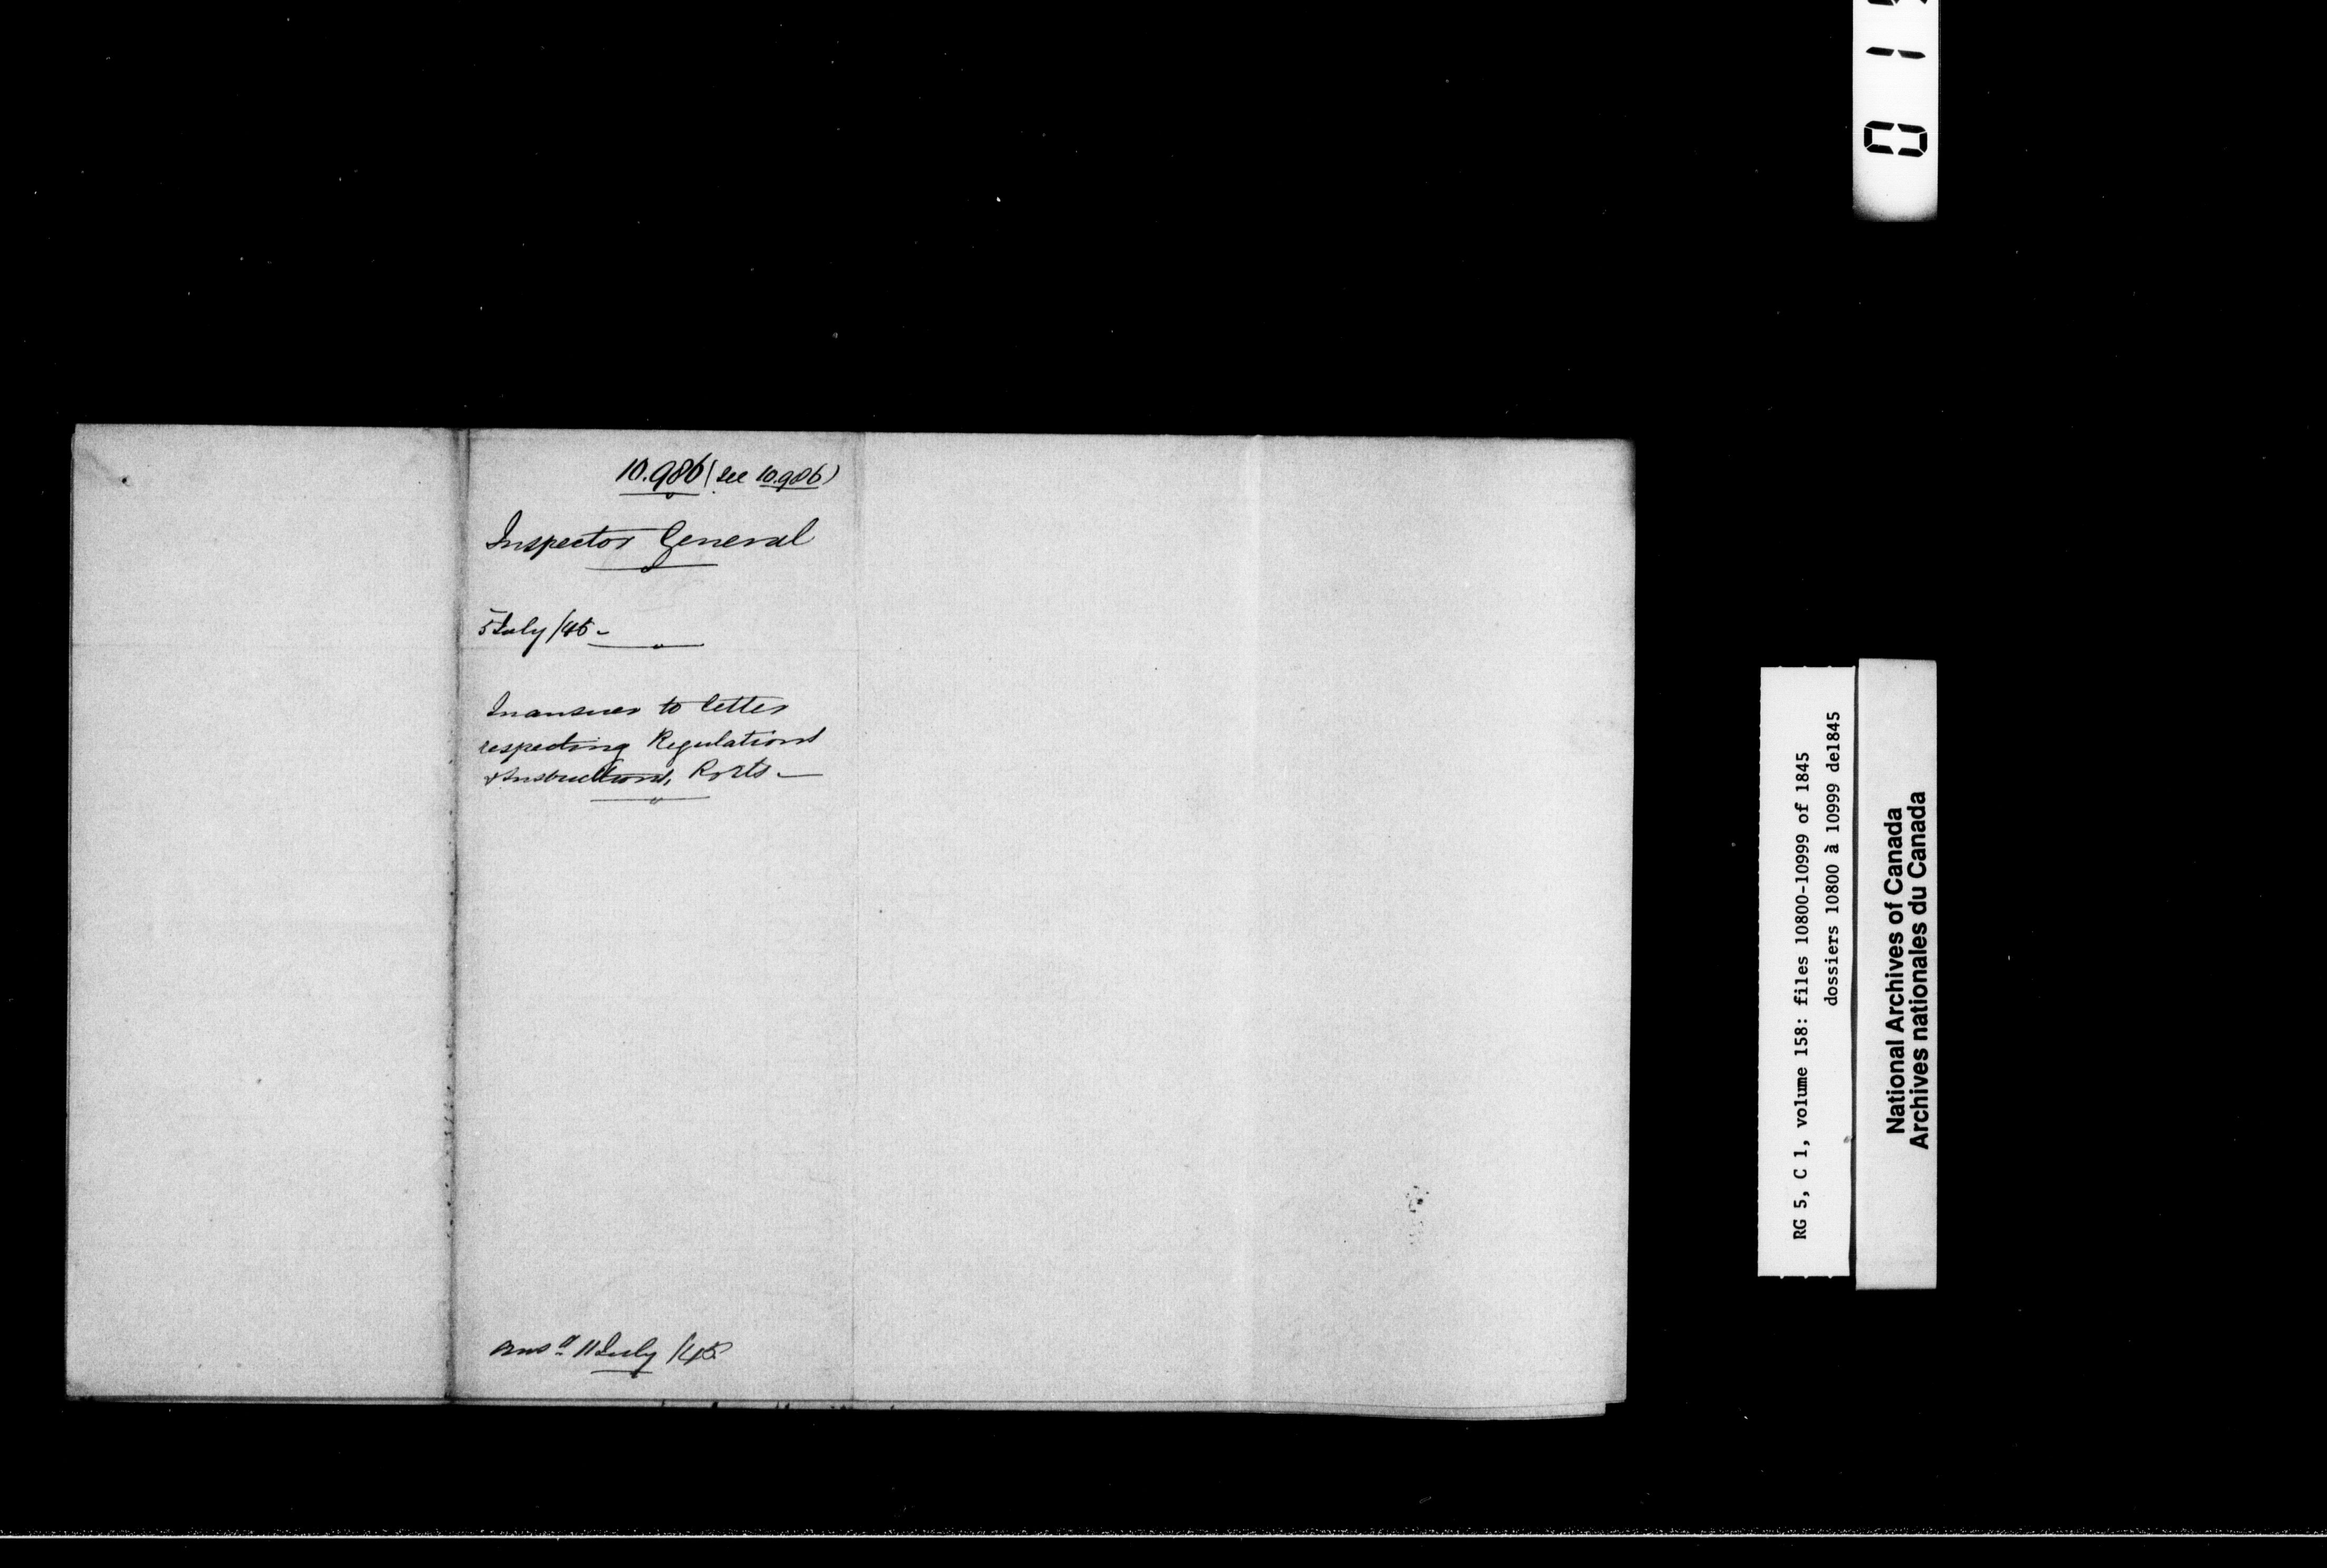 10.986 (see 10.986)
Inspector General
5 July /45 -
In answer to letter
respecting Regulations
& Instructions,
ansd 11 July /45
RG 5, C 1, volume 158: files 10800-10999 of 1845
dossiers 10800 à 10999 de1845
National Archives of Canada
Archives nationales du Canada